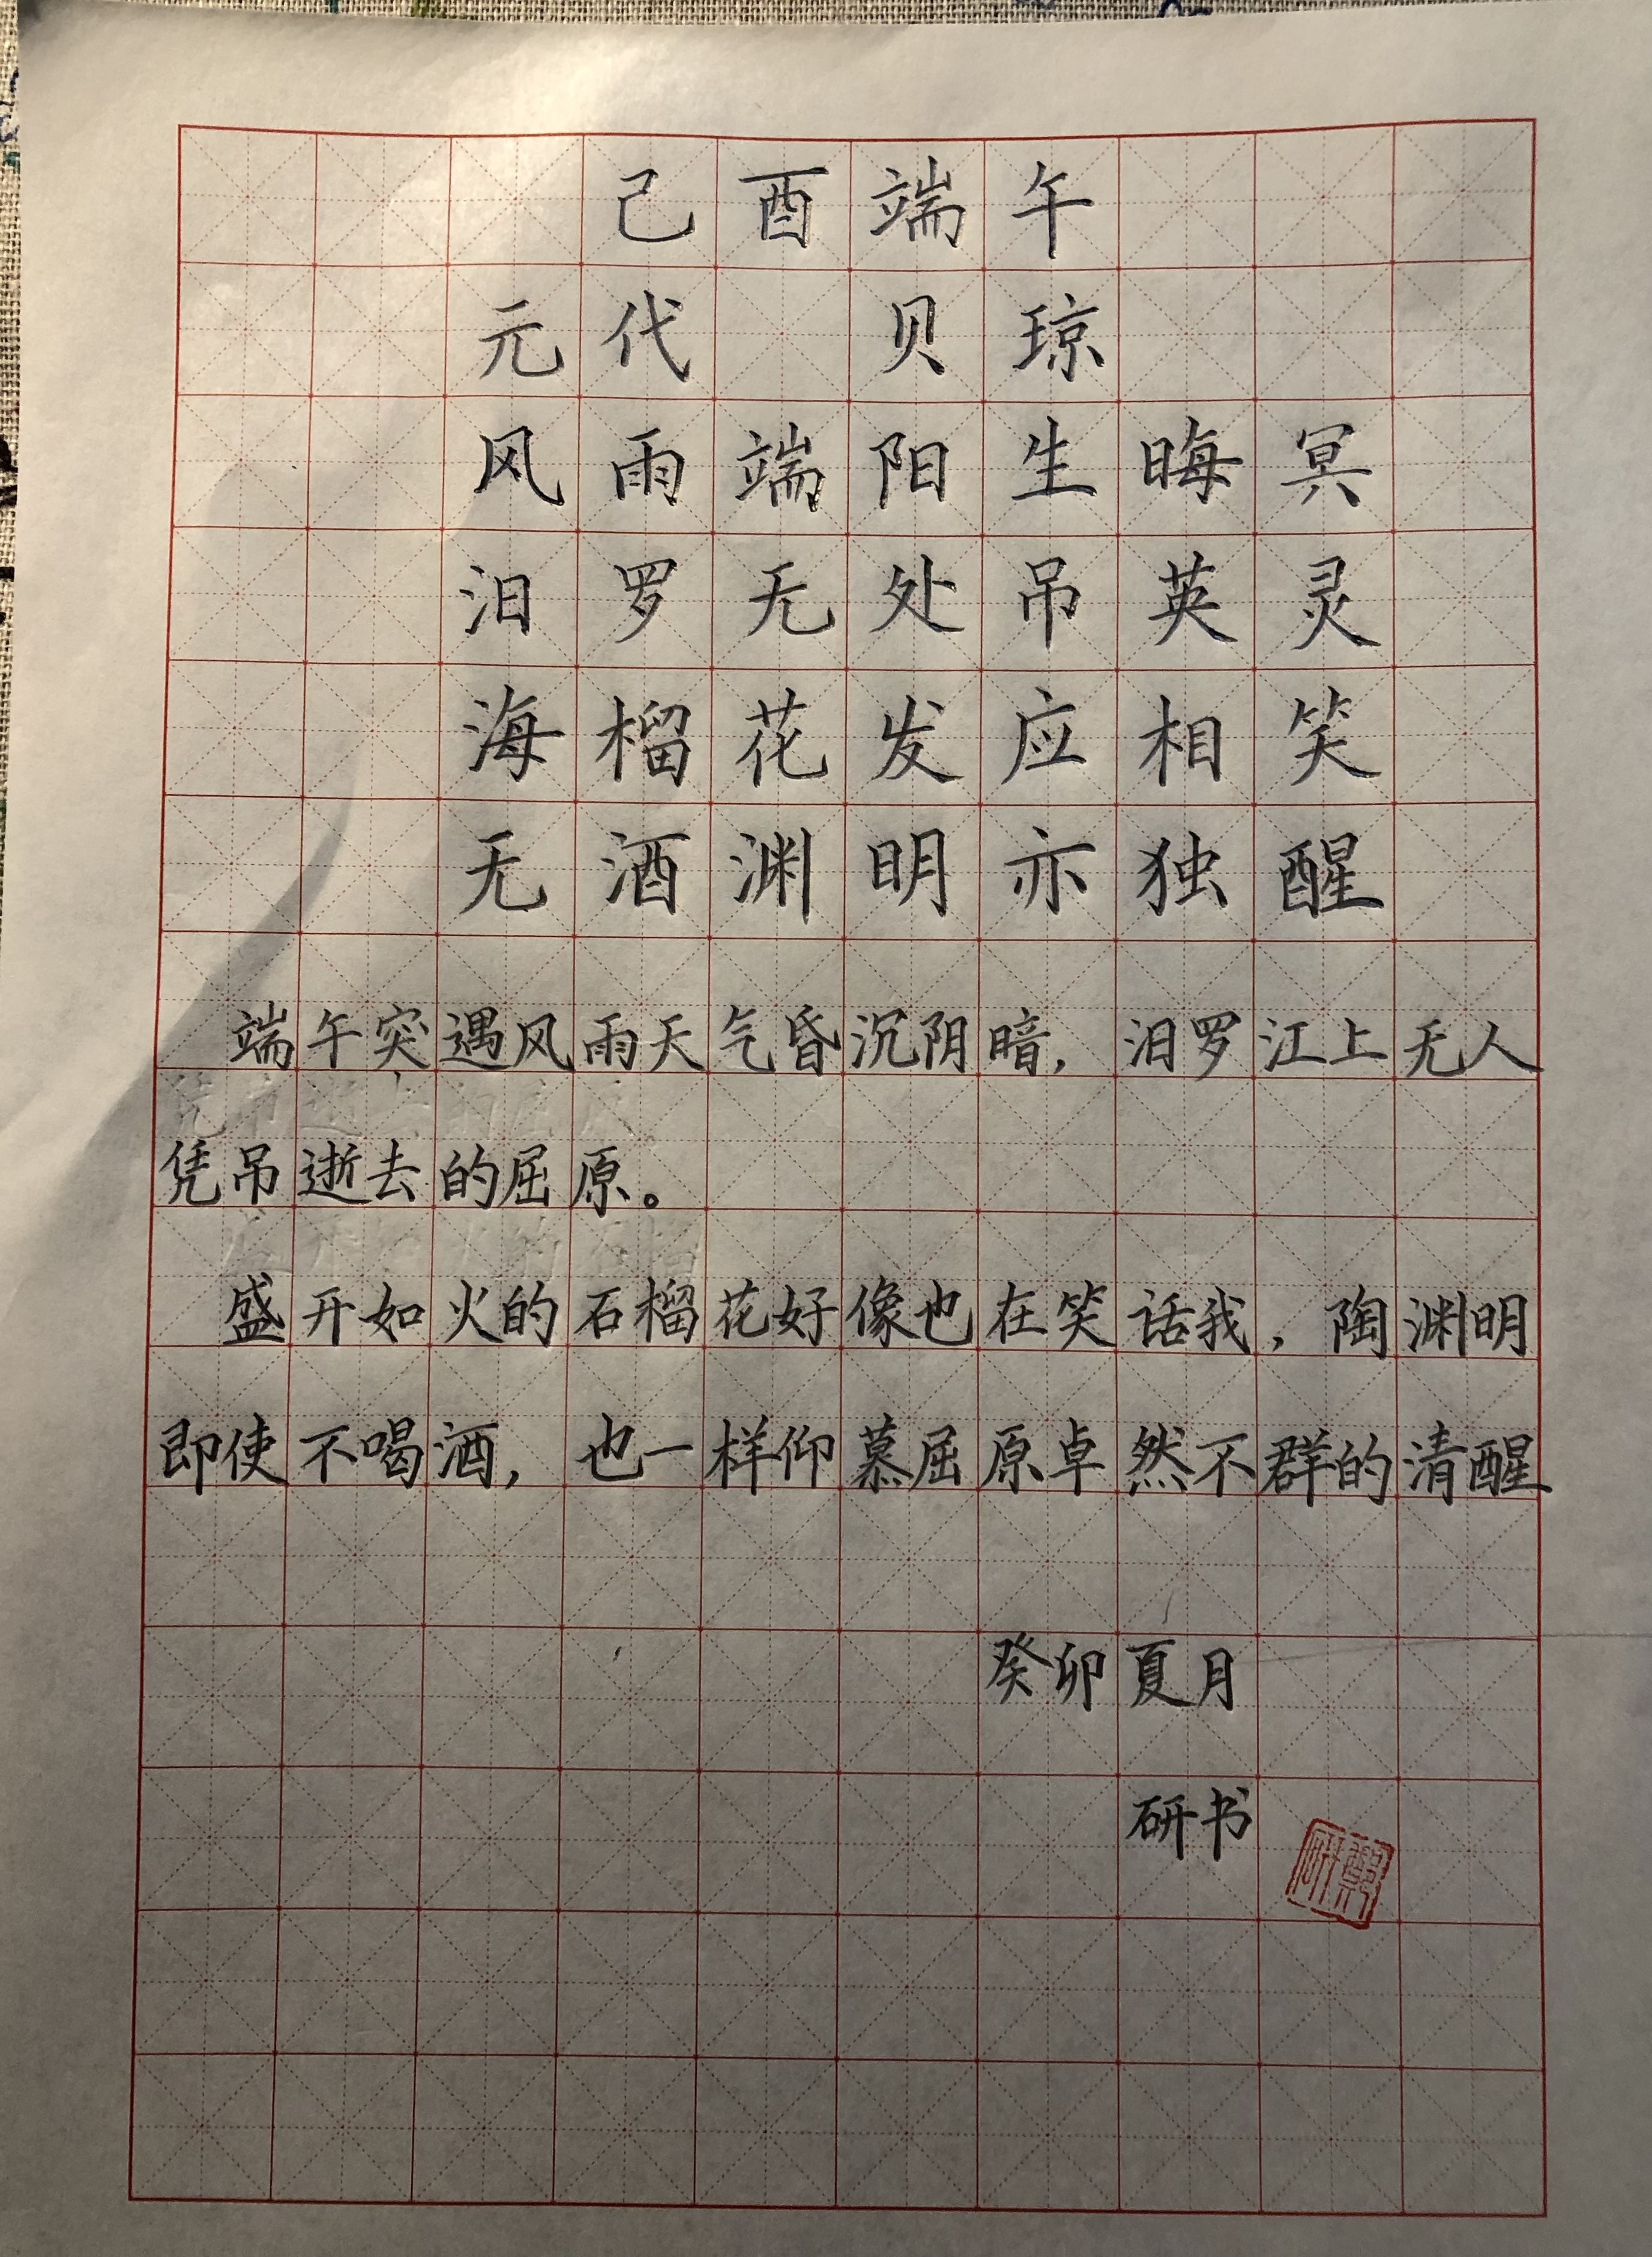 己酉端午
元代 贝琼
风雨端阳生晦冥
汨罗无处吊英灵
海榴花发应相笑
无酒渊明亦独醒
端午突遇风雨天气昏沉阴暗，汨罗江上无人
凭吊逝去的屈原。
盛开如火的石榴花好像也在笑话我，陶渊明
即使不喝酒，也一样仰慕屈原卓然不群的清醒
癸卯夏月
研书